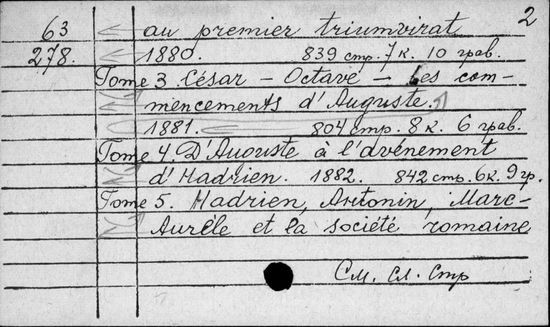 2
63 au premier triumvirat
278. 1880. 839 стр. 7 к. 10 грав.
Tome 3 César – Octave – Les com-
mencements d'Auguste.
1881. 804 стр. 8 к. 6 грав.
Tome 4. D'Auguste à l'avénement
d'Hadrien. 1882. 842 стр. 6 к. 9 гр.
Tome 5. Hadrien, Antonin, Marc-
Aurèle et la société romaine
См. сл. стр